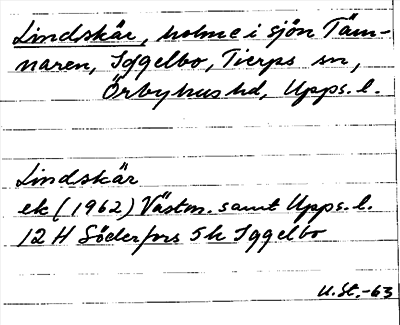 Lindskär, holme i sjön Täm-
naren, Iggelbo, Tierps sn,
Örbyhus hd, Upps. l.
Lindskär
ek (1962) Västm. samt Upps. l.
12 H Söderfors 5k Iggelbo
U.St.-63